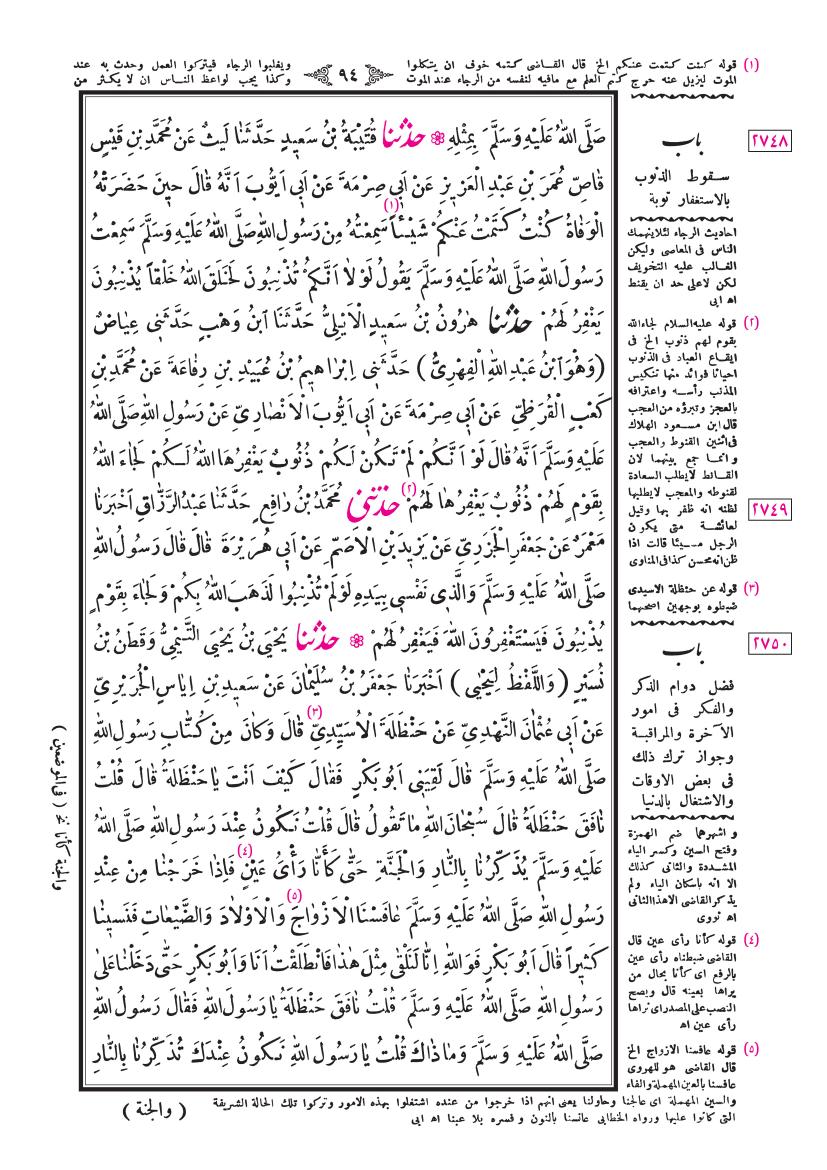 (١) قوله كنت كتمت عنكم الخ قال القاضى كتمه خوف ان يتكلوا ويغلبوا الرجاء فيتركوا العمل وحدث به عند
الموت ليزيل عنه حرج كتم العلم مع مافيه لنفسه من الرجاء عند الموت وكذا يجب لواعظ الناس ان لا يكثر من
٩٤
صَلَّى اللهُ عَلَيْهِ وَسَلَّمَ بِمِثْلِهِ ۞ حَدَّثَنَا قُتَيْبَةُ بْنُ سَعِيدٍ حَدَّثَنَا لَيْثٌ عَنْ مُحَمَّدِ بْنِ قَيْسٍ
قَاصِّ عُمَرَ بْنِ عَبْدِ الْعَزِيزِ عَنْ أَبِى صِرْمَةَ عَنْ أَبِى أَيُّوبَ أَنَّهُ قَالَ حِينَ حَضَرَتْهُ
الْوَفَاةُ كُنْتُ كَتَمْتُ عَنْكُمْ شَيْئاً (١) سَمِعْتُهُ مِنْ رَسُولِ اللهِ صَلَّى اللهُ عَلَيْهِ وَسَلَّمَ سَمِعْتُ
رَسُولَ اللهِ صَلَّى اللهُ عَلَيْهِ وَسَلَّمَ يَقُولُ لَوْلَا أَنَّكُمْ تُذْنِبُونَ لَخَلَقَ اللهُ خَلْقاً يُذْنِبُونَ
يَغْفِرُ لَهُمْ حَدَّثَنَا هٰرُونُ بْنُ سَعِيدٍ الْأَيْلِىُّ حَدَّثَنَا ابْنُ وَهْبٍ حَدَّثَنِى عِيَاضٌ
(وَهُوَ ابْنُ عَبْدِ اللهِ الْفِهْرِىُّ) حَدَّثَنِى إِبْرَاهِيمُ بْنُ عُبَيْدِ بْنِ رِفَاعَةَ عَنْ مُحَمَّدِ بْنِ
كَعْبٍ الْقُرَظِىِّ عَنْ أَبِى صِرْمَةَ عَنْ أَبِى أَيُّوبَ الْأَنْصَارِىِّ عَنْ رَسُولِ اللهِ صَلَّى اللهُ
عَلَيْهِ وَسَلَّمَ أَنَّهُ قَالَ لَوْ أَنَّكُمْ لَمْ تَكُنْ لَكُمْ ذُنُوبٌ يَغْفِرُهَا اللهُ لَكُمْ لَجَاءَ اللهُ
بِقَوْمٍ لَهُمْ ذُنُوبٌ يَغْفِرُهَا لَهُمْ (٢) حَدَّثَنِى مُحَمَّدُ بْنُ رَافِعٍ حَدَّثَنَا عَبْدُ الرَّزَّاقِ أَخْبَرَنَا
مَعْمَرٌ عَنْ جَعْفَرٍ الْجَزَرِىِّ عَنْ يَزِيدَ بْنِ الْأَصَمِّ عَنْ أَبِى هُرَيْرَةَ قَالَ قَالَ رَسُولُ اللهِ
صَلَّى اللهُ عَلَيْهِ وَسَلَّمَ وَالَّذِى نَفْسِى بِيَدِهِ لَوْ لَمْ تُذْنِبُوا لَذَهَبَ اللهُ بِكُمْ وَلَجَاءَ بِقَوْمٍ
يُذْنِبُونَ فَيَسْتَغْفِرُونَ اللهَ فَيَغْفِرُ لَهُمْ ۞ حَدَّثَنَا يَحْيَى بْنُ يَحْيَى التَّيْمِىُّ وَقَطَنُ بْنُ
نُسَيْرٍ (وَاللَّفْظُ لِيَحْيَى) أَخْبَرَنَا جَعْفَرُ بْنُ سُلَيْمَانَ عَنْ سَعِيدِ بْنِ إِيَاسٍ الْجُرَيْرِىِّ
عَنْ أَبِى عُثْمَانَ النَّهْدِىِّ عَنْ حَنْظَلَةَ الْأُسَيِّدِىِّ (٣) قَالَ وَكَانَ مِنْ كُتَّابِ رَسُولِ اللهِ
صَلَّى اللهُ عَلَيْهِ وَسَلَّمَ قَالَ لَقِيَنِى أَبُو بَكْرٍ فَقَالَ كَيْفَ أَنْتَ يَا حَنْظَلَةُ قَالَ قُلْتُ
نَافَقَ حَنْظَلَةُ قَالَ سُبْحَانَ اللهِ مَا تَقُولُ قَالَ قُلْتُ نَكُونُ عِنْدَ رَسُولِ اللهِ صَلَّى اللهُ
عَلَيْهِ وَسَلَّمَ يُذَكِّرُنَا بِالنَّارِ وَالْجَنَّةِ حَتَّى كَأَنَّا رَأْىُ عَيْنٍ (٤) فَإِذَا خَرَجْنَا مِنْ عِنْدِ
رَسُولِ اللهِ صَلَّى اللهُ عَلَيْهِ وَسَلَّمَ عَافَسْنَا الْأَزْوَاجَ (٥) وَالْأَوْلَادَ وَالضَّيْعَاتِ فَنَسِينَا
كَثِيراً قَالَ أَبُو بَكْرٍ فَوَاللهِ إِنَّا لَنَلْقَى مِثْلَ هٰذَا فَانْطَلَقْتُ أَنَا وَأَبُو بَكْرٍ حَتَّى دَخَلْنَا عَلَى
رَسُولِ اللهِ صَلَّى اللهُ عَلَيْهِ وَسَلَّمَ قُلْتُ نَافَقَ حَنْظَلَةُ يَا رَسُولَ اللهِ فَقَالَ رَسُولُ اللهِ
صَلَّى اللهُ عَلَيْهِ وَسَلَّمَ وَمَا ذَاكَ قُلْتُ يَا رَسُولَ اللهِ نَكُونُ عِنْدَكَ تُذَكِّرُنَا بِالنَّارِ
٢٧٤٨
باب
سقوط الذنوب
بالاستغفار توبة
احاديث الرجاء لئلاينهمك
الناس فى المعاصى وليكن
الغالب عليه التخويف
لكن لاعلى حد ان يقنط
اه ابى
(٢) قوله عليه السلام لجاءالله
بقوم لهم ذنوب الخ فى
ايقاع العباد فى الذنوب
احيانا فوائد منها تنكيس
المذنب رأسه واعترافه
بالعجز وتبرؤه من العجب
قال ابن مسعود الهلاك
فى اثنين القنوط والعجب
وانما جمع بينهما لان
القانط لايطلب السعادة
لقنوطه والمعجب لايطلبها
لظنه انه ظفر بها وقيل
لعائشة متى يكون
الرجل مسيئا قالت اذا
ظن انه محسن كذا فى المناوى
٢٧٤٩
(٣) قوله عن حنظلة الاسيدى
ضبطوه بوجهين اصحهما
٢٧٥٠
باب
فضل دوام الذكر
والفكر فى امور
الآخرة والمراقبة
وجواز ترك ذلك
فى بعض الاوقات
والاشتغال بالدنيا
واشهرهما ضم الهمزة
وفتح السين وكسر الياء
المشددة والثانى كذلك
الا انه باسكان الياء ولم
يذكر القاضى الاهذا الثانى
اه نووى
(٤) قوله كأنا رأى عين قال
القاضى ضبطناه رأى عين
بالرفع اى كأنا بحال من
يراها بعينه قال ويصح
النصب على المصدر اى نراها
رأى عين اه
(٥) قوله عافسنا الازواج الخ
قال القاضى هو للهروى
عافسنا بالعين المهملة والفاء
والسين المهملة اى عالجنا وحاولنا يعنى انهم اذا خرجوا من عنده اشتغلوا بهذه الامور وتركوا تلك الحالة الشريفة
التى كانوا عليها ورواه الخطابى عانسنا بالنون وفسره بلا عبنا اه ابى
(والجنة)
والجنة كأنا نخ (فى الموضعين)